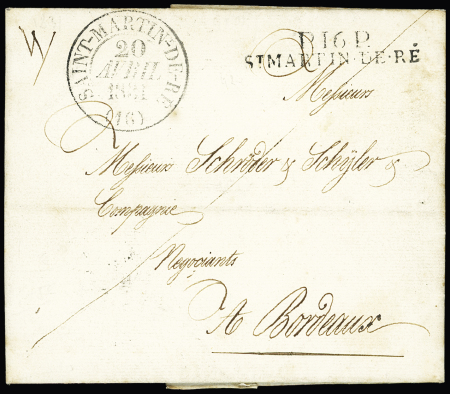 SAINT-MARTIN-DE-RÉ
20
AVRIL
1831
(16)
P.16.P.
ST MARTIN-DE-RÉ
Messieurs
Messieurs Schröder & Schÿler &
Compagnie
Negoçiants
A Bordeaux